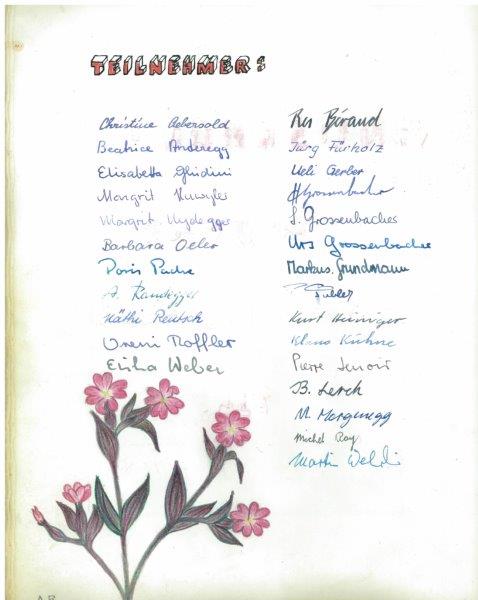 TEILNEHMER:
Christine Aebersold
Beatrice Anderegg
Elisabetta Ghidini
Margrit Kuwyler
Margrit Nydegger
Barbara Oeler
Doris Pache
A. Randegger
Käthi Rentsch
Vreni Roffler
Erika Weber
Res Béraud
Jürg Fürholz
Ueli Gerber
H Grossenbacher
S. Grossenbacher
Urs Grossenbacher
Markus Grundmann
Kurt Heiniger
Klaus Kühne
Pierre Lenoir
B. Lerch
M. Morgenegg
Michel Roy
Martin